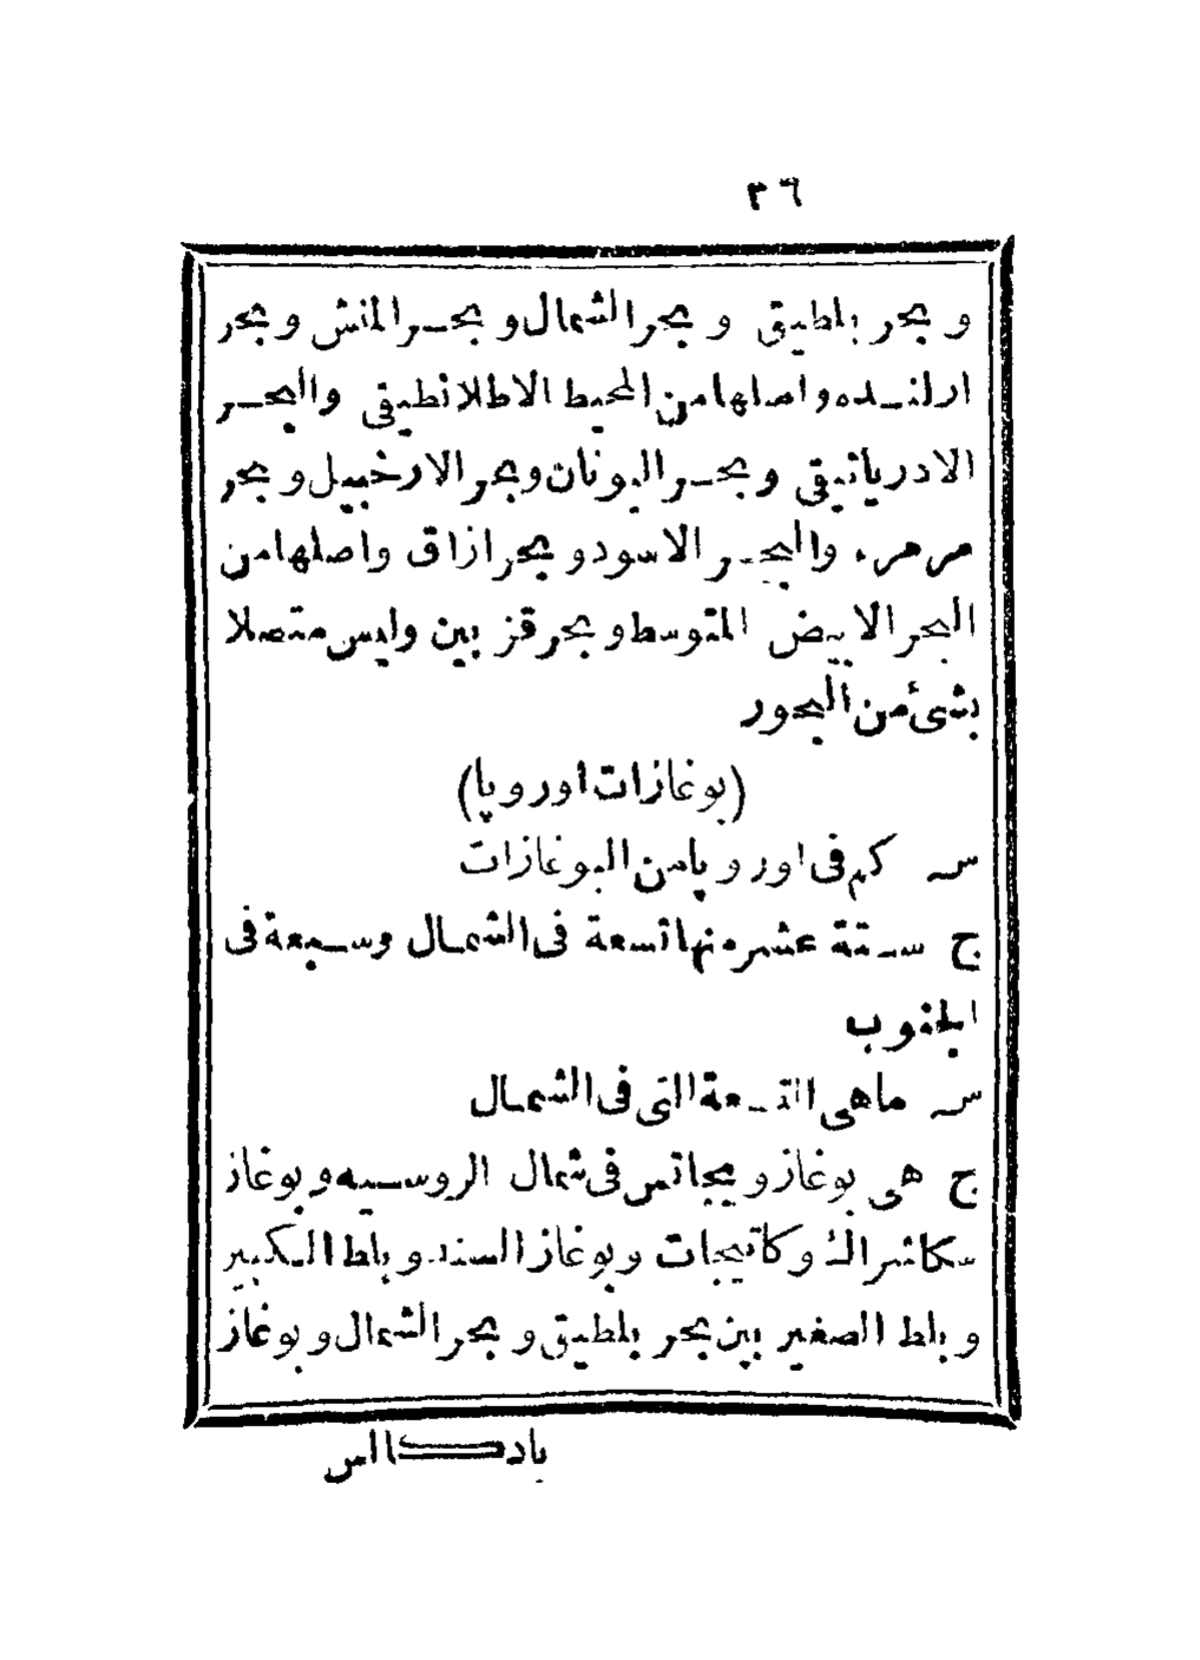 ٣٦
و بحر بلطيق و بحر الشمال و بحر المنش و بحر
ارلنده و اصلها من المحيط الاطلانطيقى والبحر
الادرياتيقى و بحر اليونان و بحر الارخبيل و بحر
مرمره والبحر الاسود و بحر ازاق واصلها من
البحر الابيض المتوسط و بحر قز بين وليس متصلا
بشئ من البحور
(بوغازات اوروپا)
س كم فى اوروپا من البوغازات
ج ستة عشر منها تسعة فى الشمال وسبعة فى
الجنوب
س ما هى التسعة التى فى الشمال
ج هى بوغاز و يجاتس فى شمال الروسيه و بوغاز
سكاتراك و كاتيجات و بوغاز السند و باط الكبير
و باط الصغير بين بحر بلطيق و بحر الشمال و بوغاز
بادكالس